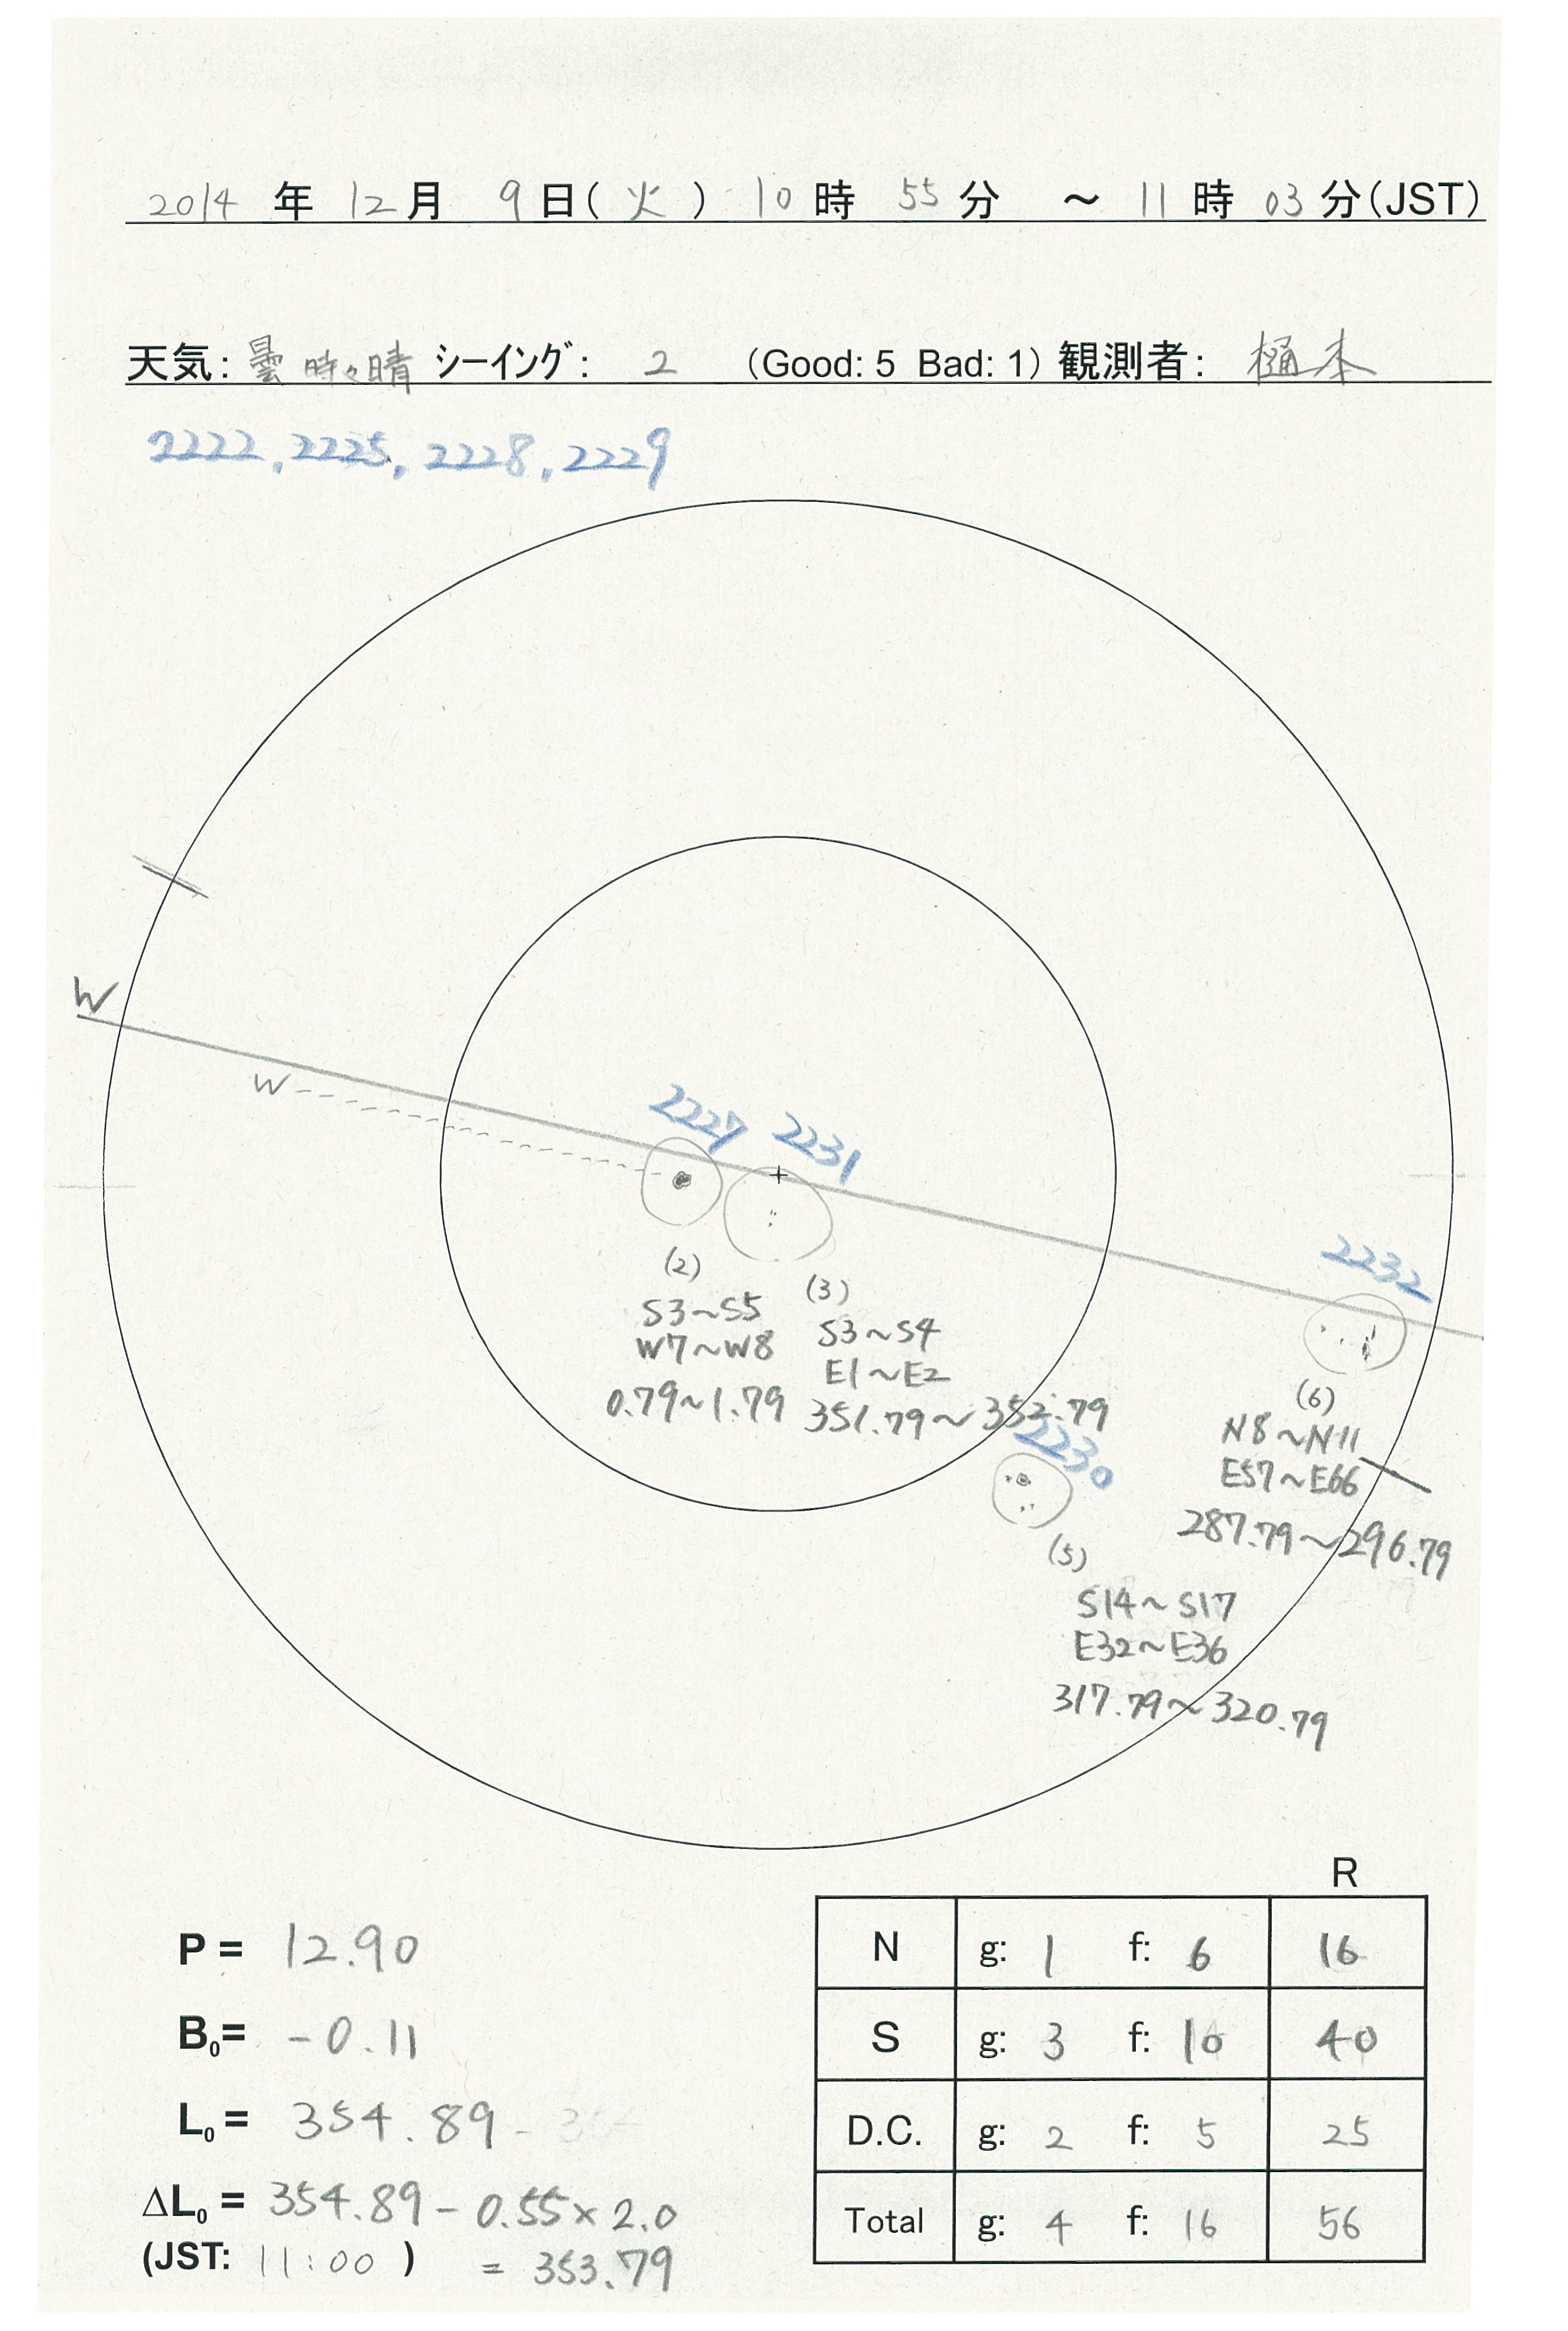 2014 年 12 月 9 日( 火 ) 10 時 55 分 ～ 11 時 03 分(JST)
天気: 曇 時々晴 シーイング: 2 (Good: 5 Bad: 1) 観測者: 樋本
2222, 2225, 2228, 2229
W
W
2227 2231
2232
(2)
S3~S5
W7~W8
0.79~1.79
(3)
S3~S4
E1~E2
351.79~352.79
2230
(6)
N8~N11
E57~E66
287.79~296.79
(5)
S14~S17
E32~E36
317.79~320.79
R
P = 12.90
N g: 1 f: 6 16
B₀= -0.11
S g: 3 f: 10 40
L₀ = 354.89
D.C. g: 2 f: 5 25
ΔL₀ = 354.89 - 0.55 × 2.0
Total g: 4 f: 16 56
(JST: 11:00 ) = 353.79